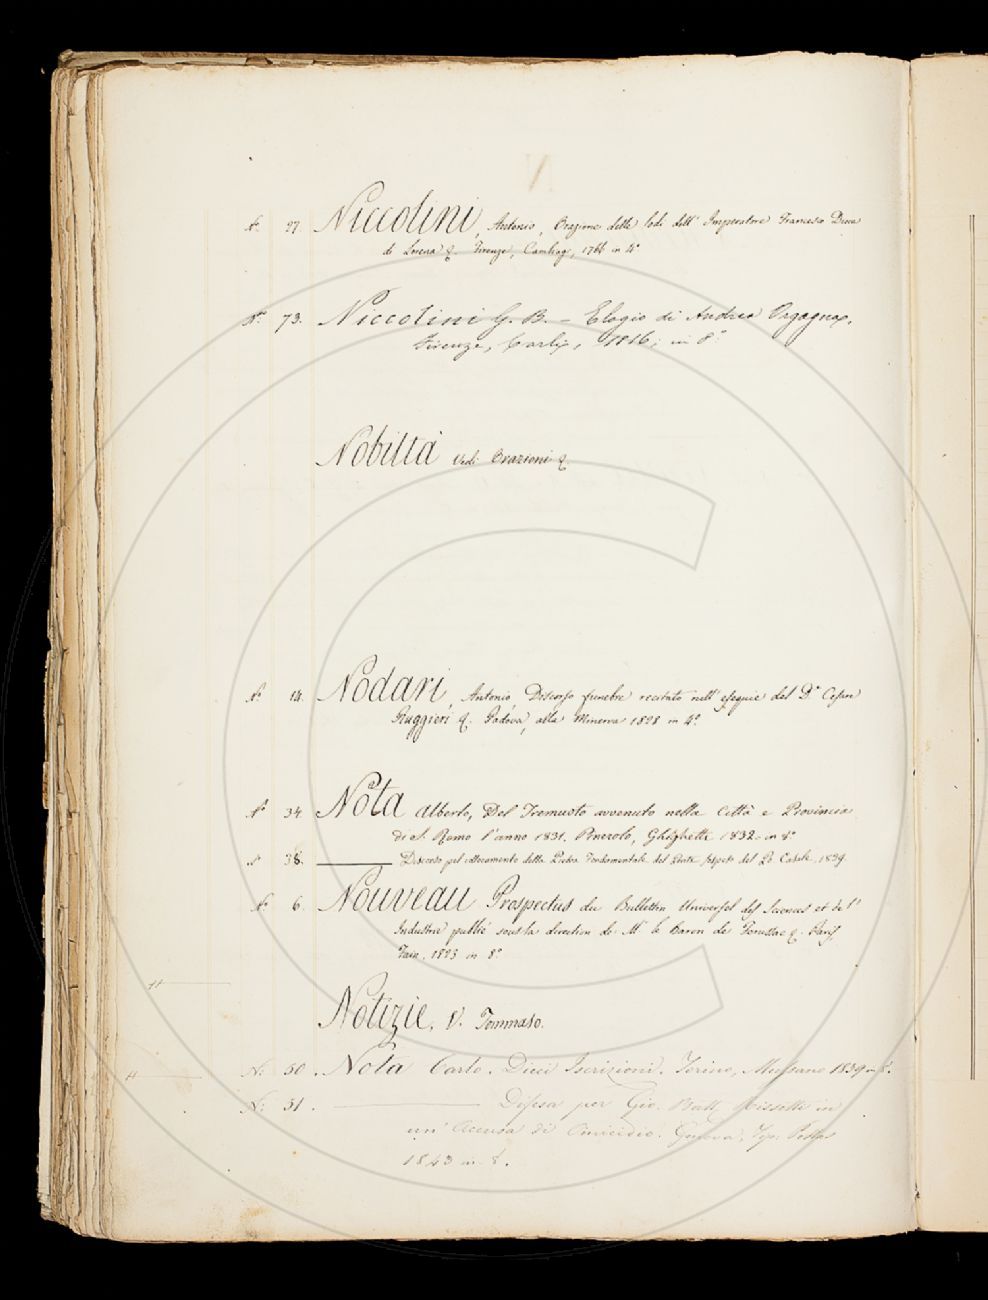 N
N.° 27. Niccolini, Antonio, Orazione delle lodi dell' Imperatore Francesco Duca
di Lorena &. Firenze, Cambiagi, 1766 in 4°
N.° 73. Niccolini G. B. – Elogio di Andrea Orgagna,
Firenze, Carli, 1816; in 8.°
Nobiltà Vedi Orazioni &.
N.° 14. Nodari, Antonio, Discorso funebre recitato nell' esequie del D.r Cesare
Ruggieri &. Padova, alla Minerva 1828 in 4.°
N.° 34 Nota Alberto, Del Tremuoto avvenuto nella Città e Provincia
di S. Remo l'anno 1831. Pinerolo, Ghighetti 1832 in 8.°
N.° 38. ——— Discorso pel collocamento della Pietra Fondamentale del Ponte sospeso del Po Casale, 1839.
N.° 6. Nouveau Prospectus du Bulletin Universel des Sciences et de l'
Industrie publié sous la direction de M. le Baron de Ferussac &. Paris,
Fain, 1823 in 8.°
Notizie, V. Tommaso.
N.° 50. Nota Carlo. Dieci Iscrizioni. Torino, Mussano 1839 in 8.
N.° 51. ——— Difesa per Gio. Batt. in
un' Accusa di Omicidio. Genova, Tip.
1843 in 8.